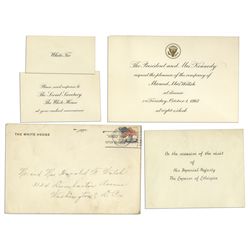 White Tie
Please send response to
The Social Secretary
The White House
at your earliest convenience
The President and Mrs. Kennedy
request the pleasure of the company of
at dinner
on Tuesday, October 1, 1963
at eight o'clock
THE WHITE HOUSE
Mr. and Mrs.
Avenue
Washington
On the occasion of the visit
of
His Imperial Majesty
The Emperor of Ethiopia